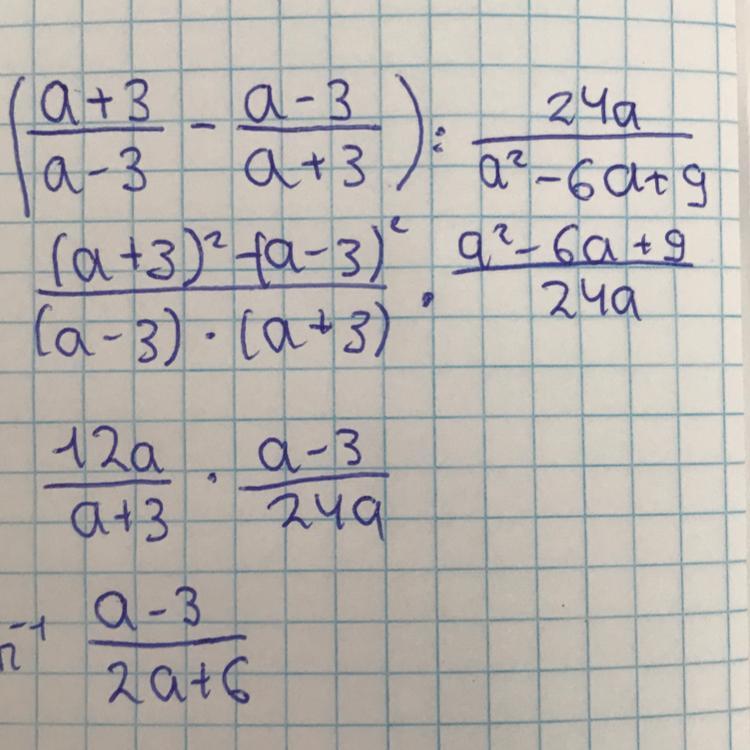 (a+3/a-3 - a-3/a+3) : 24a/a²-6a+9
(a+3)²-(a-3)²/(a-3)·(a+3) · a²-6a+9/24a
12a/a+3 · a-3/24a
a-3/2a+6